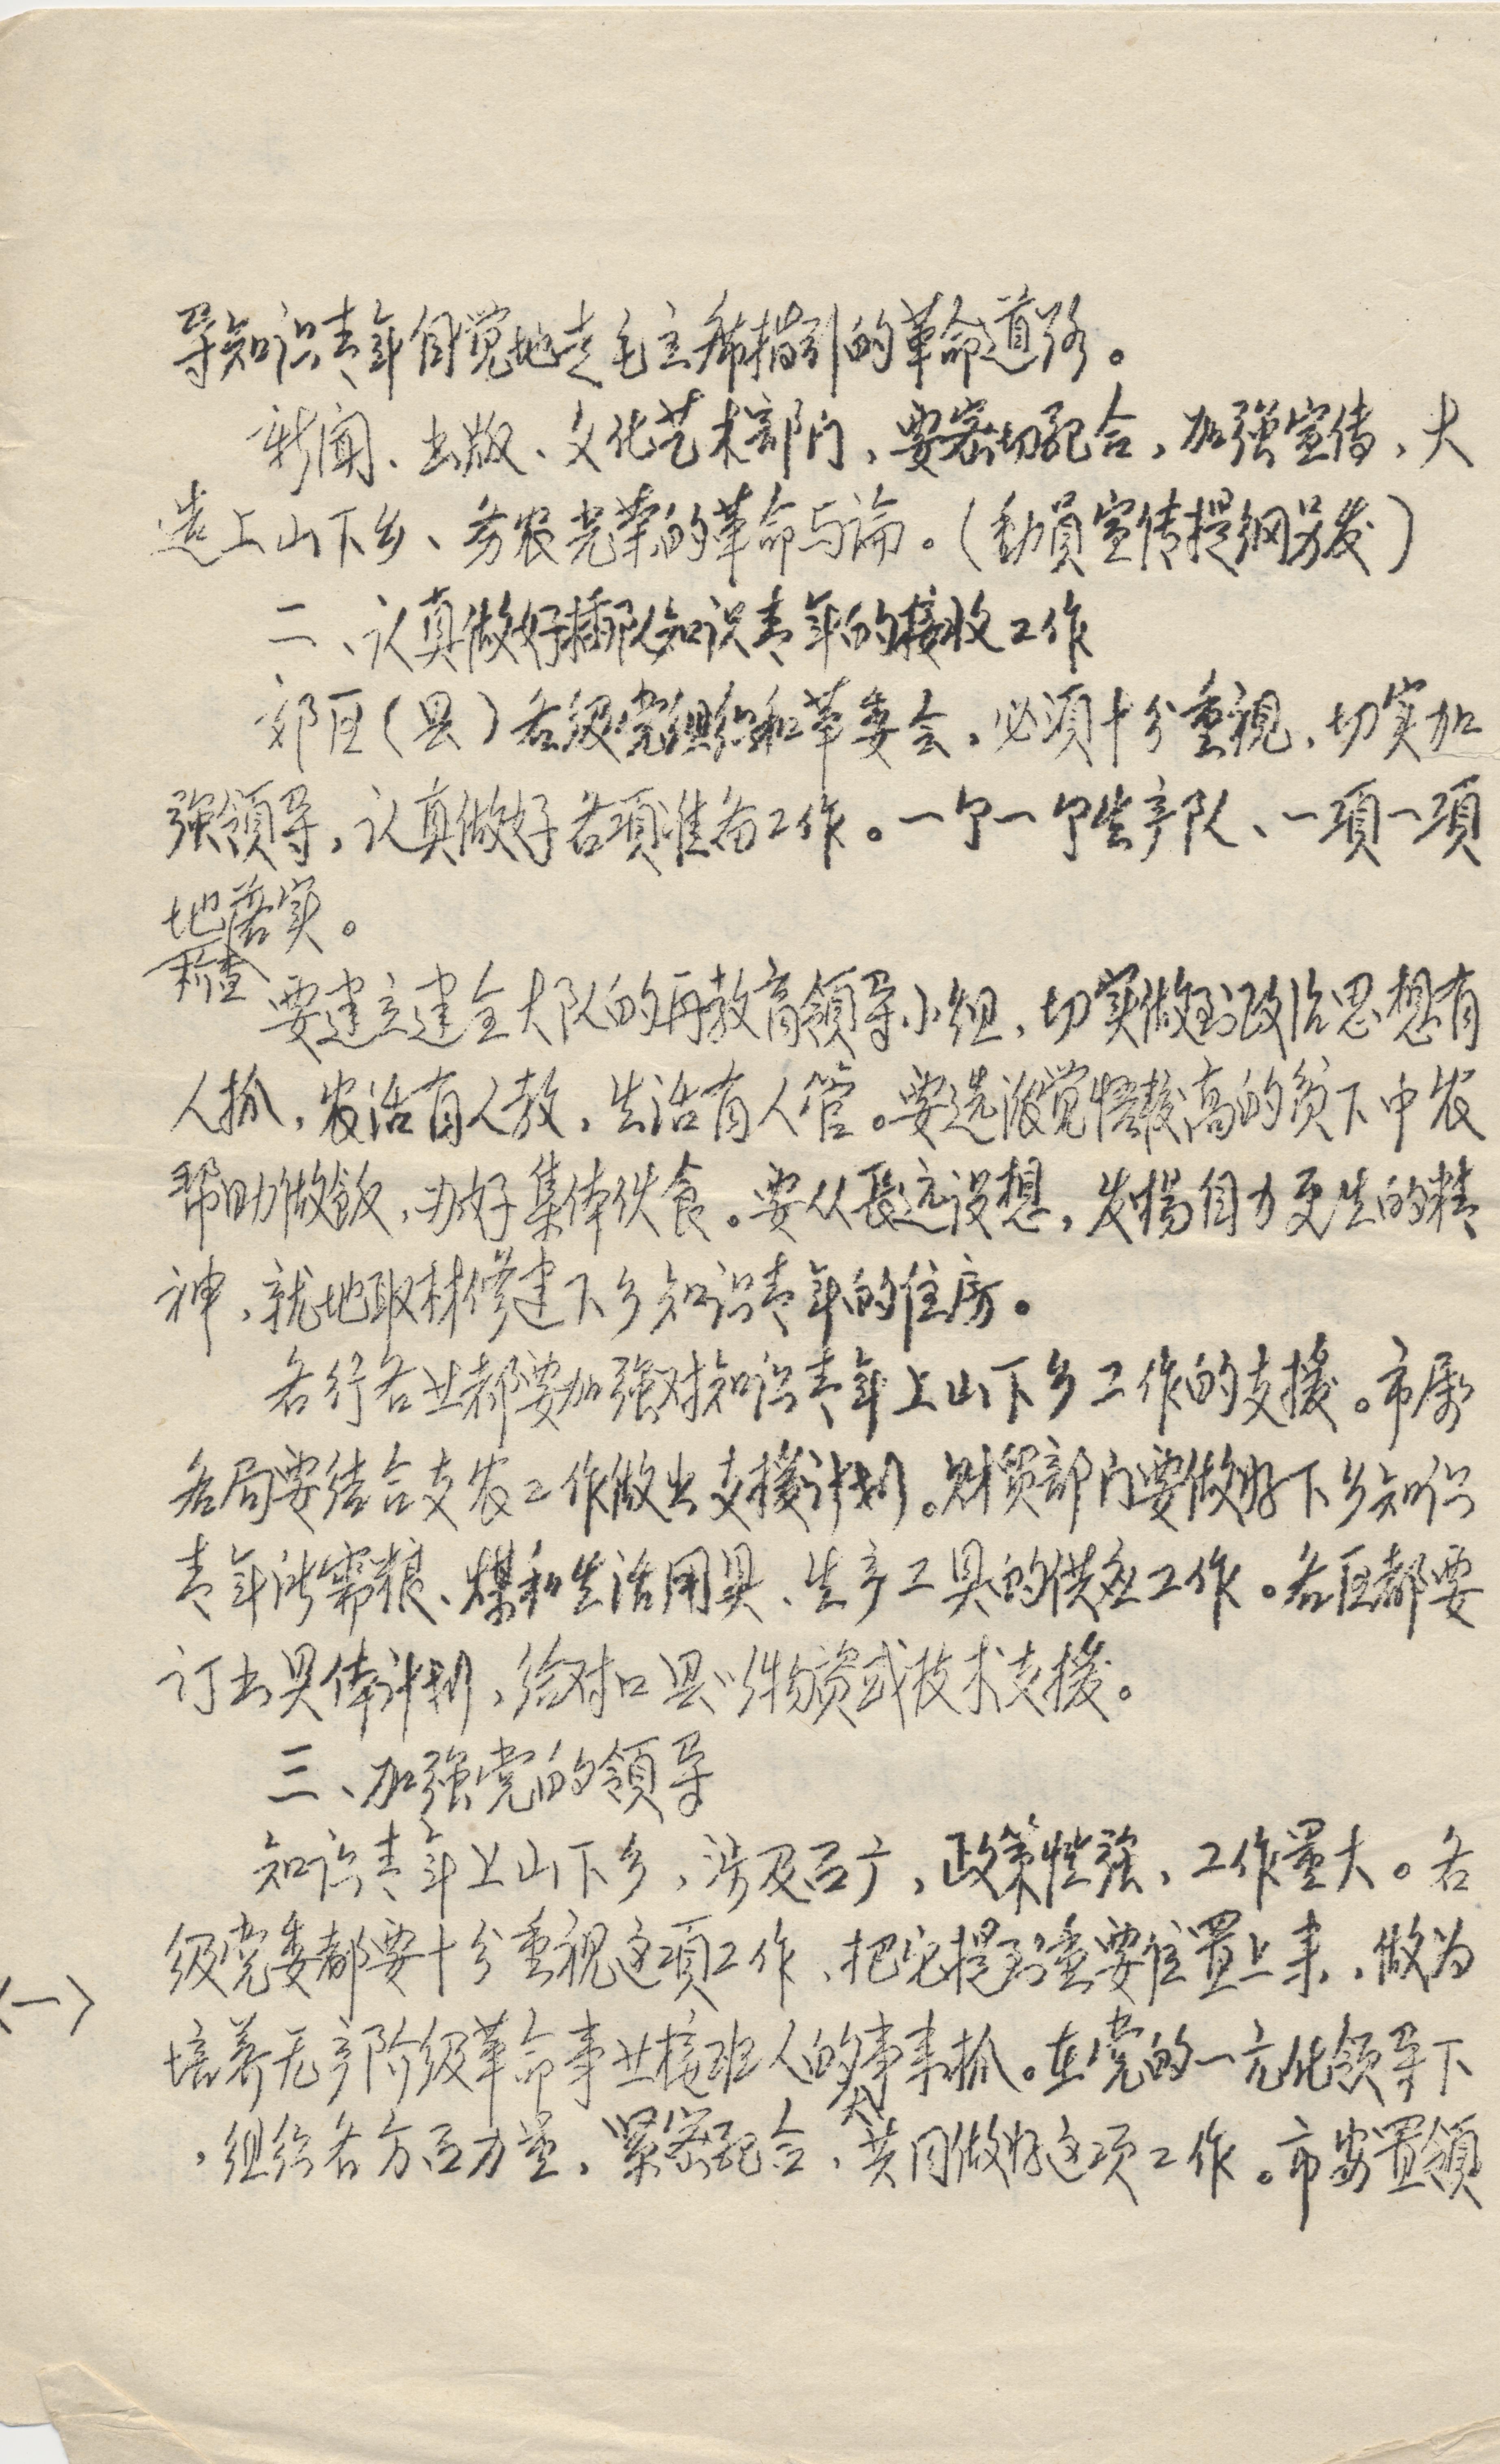 导知识青年自觉地走毛主席指引的革命道路。
新闻、出版、文化艺术部门，要密切配合，加强宣传，大
造上山下乡、务农光荣的革命与论。（動員宣传提纲另发）
二、认真做好插队知识青年的接收工作
郊区（县）各级党组织和革委会，必须十分重视，切实加
强领导，认真做好各项准备工作。一个一个生产队、一项一项
地落实。
检查
要建立建全大队的再教育领导小组，切实做到政治思想有
人抓，农活有人教，生活有人管。要选派觉悟较高的贫下中农
帮助做飯，办好集体伙食。要从長远设想，发揚自力更生的精
神，就地取材修建下乡知识青年的住房。
各行各业都要加强对知识青年上山下乡工作的支援。市属
各局要结合支农工作做出支援计划。财贸部门要做好下乡知识
青年所需粮、煤和生活用具、生产工具的供应工作。各区都要
订出具体计划，给对口县以物资或技术支援。
三、加强党的領导
知识青年上山下乡，涉及面广，政策性强，工作量大。各
级党委都要十分重视这项工作，把它提到重要位置上来，做为
〈一〉
培养无产阶级革命事业接班人的大事来抓。在党的一元化领导下
，组织各方面力量，紧密配合，共同做好这项工作。市安置領